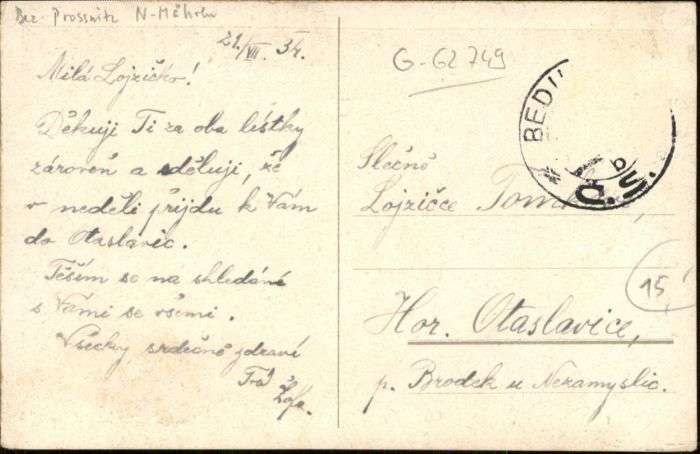 Bez. Prossnitz N-Mähren
21./VII. 34.
Milá Lojzičko!
Děkuji Ti za oba lístky
zároveň a sděluji, že
v neděli přijdu k Vám
do Otaslavic.
Těším se na shledání
s Vámi se všemi.
Všecky srdečně zdraví
Tvá
Žofa.
G-62749
BEDI
Č.S.
b
Slečně
Lojzičce
15
Hor. Otaslavice,
p. Brodek u Nezamyslic.